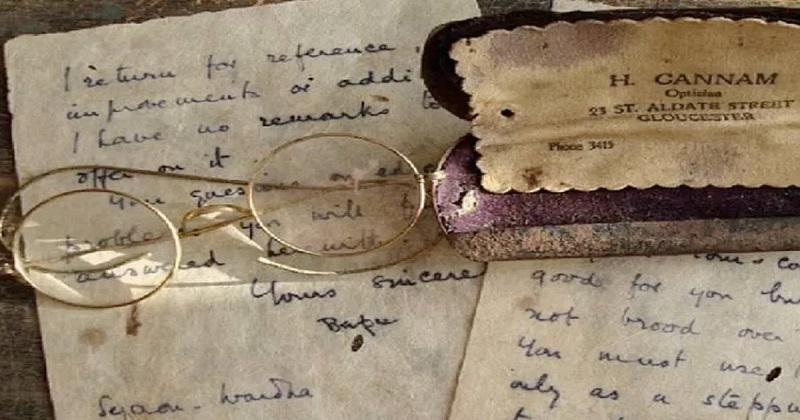 I return for reference,
improvements or addi
I have no remarks to
offer on it
Your ques ons on
proble you will
answered herewith
Yours sincere
Bapu
Segaon - Wardha
H. CANNAM
Optician
23 ST. ALDATE STREET
GLOUCESTER
Phone 3415
good for you bu
not brood over
You must use
only as a stepp